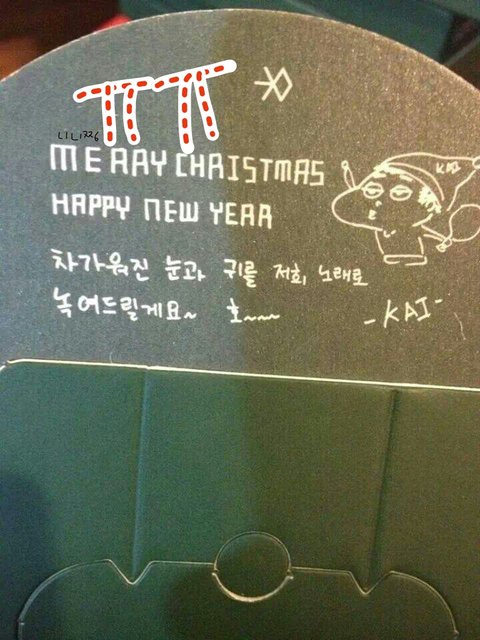 ㅠㅠ
EXO
LILI226
MERRY CHRISTMAS
KAI
HAPPY NEW YEAR
차가워진 눈과 귀를 저희 노래로
녹여드릴게요~ 호~~~
-KAI-